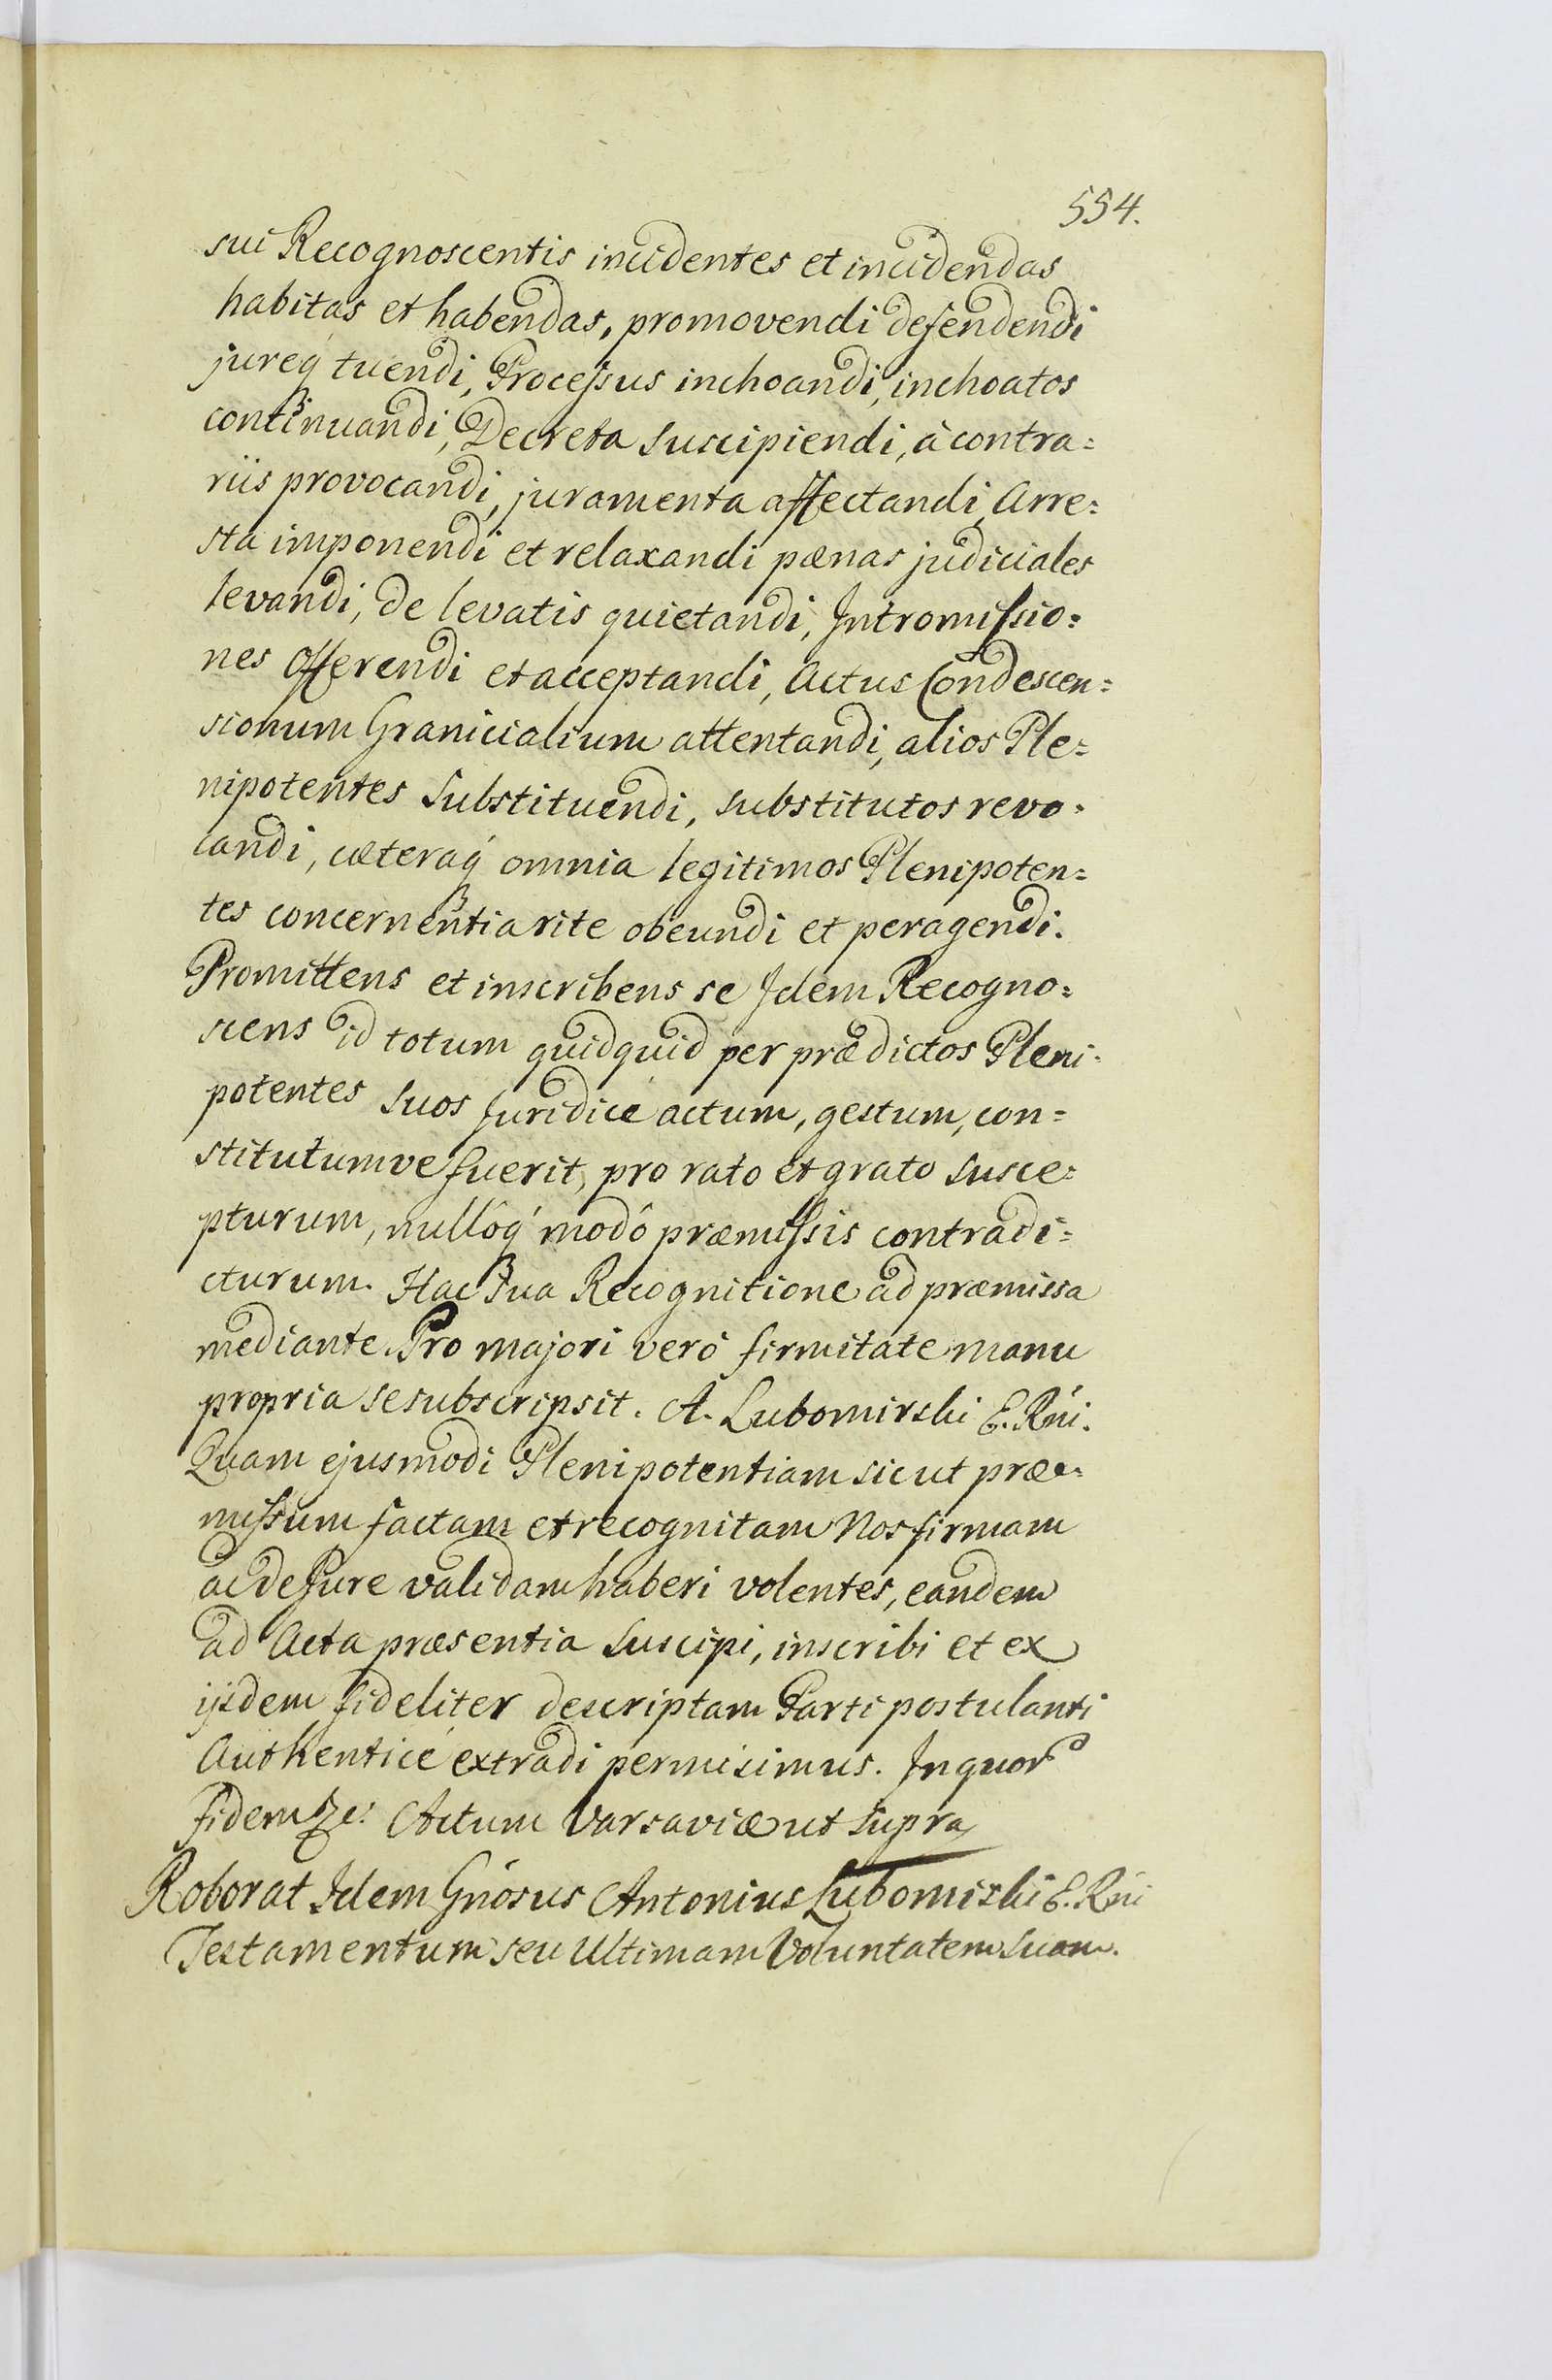 554.
sui Recognoscentis incidentes et incidendas
habitas et habendas, promovendi defendendi
jureq́ tuendi, Processus inchoandi, inchoatos
continuandi, Decreta suscipiendi, à contra=
riis provocandi, juramenta affectandi, Arre=
sta imponendi et relaxandi pænas judiciales
levandi, de levatis quietandi, Intromissio=
nes Offerendi et acceptandi, Actus Condescen=
sionum Granicialium attentandi, alios Ple=
nipotentes Substituendi, substitutos revo=
candi, cæteraq́ omnia legitimos Plenipoten=
tes concernentia rite obeundi et peragendi.
Promittens et inscribens se Idem Recogno=
scens id totum quidquid per prædictos Pleni=
potentes suos Juridicè actum, gestum, con=
stitutumve fuerit, pro rato et grato susce=
pturum, nullôq́ modô præmissis contradi=
cturum. Hac Sua Recognitione ad præmissa
mediante. Pro majori verò firmitate manu
propria se subscripsit. A. Lubomirski E. Rńi.
Quam ejusmodi Plenipotentiam sicut præ=
missum factam et recognitam Nos firmam
ac de Jure validam haberi volentes, eandem
ad Acta præsentia suscipi, inscribi et ex
ijsdem fideliter descriptam Parti postulanti
Authenticè extradi permisimus. In quor
fidem &c: Actum Varsaviæ ut supra
Roborat Idem Gńosus Antonius Lubomirski E. Rńi
Testamentum seu Ultimam Voluntatem suam.